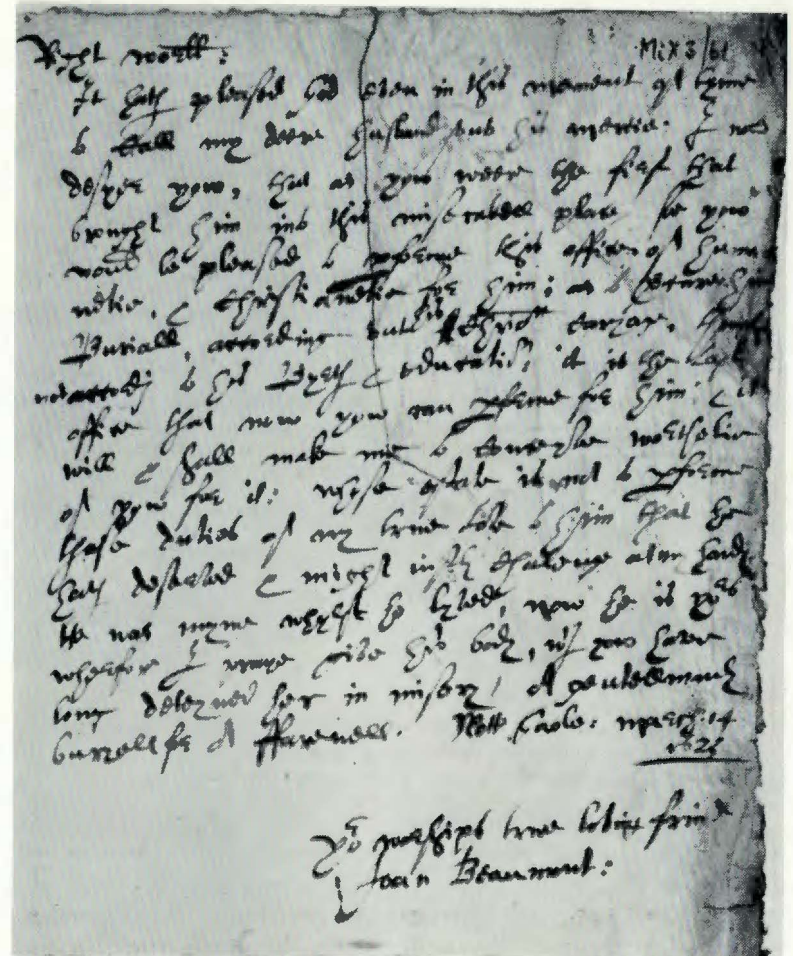 Right worll:
MiX 3/61
It hath pleased god even in this moment of tyme
to Call my deere husband unto his mercie: I now
desyer yow, that as yow weer the first that
brought him into this miserabell place so yow
would be pleased to pforme this office of huma
nitie, & Christianitie for him; as to
Buriall, according unto his
not according to his Byrth & educatiō, it is the last
office that now yow can pforme for him: & it
will & shall make me to Conceyve worthelie
of yow for it: whose estate is not to pforme
those duties of my true love to him that he
hath deserved & might Chalenge at my hands
He was myne whylst he lyved, now he is yors
wherfor I wave his body, wch yow have
long deteyned her in misery; A gentellmans
buryall for A ffarewell. March: 14
yor worships true loving frind
Joan Beaumont: